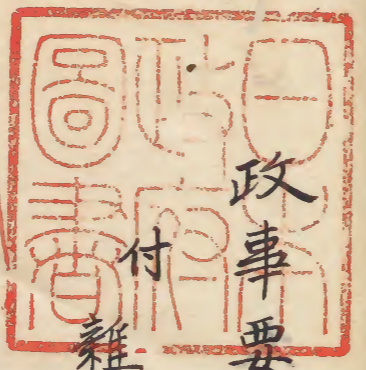 日本
政府
圖書
政事要
付
雜